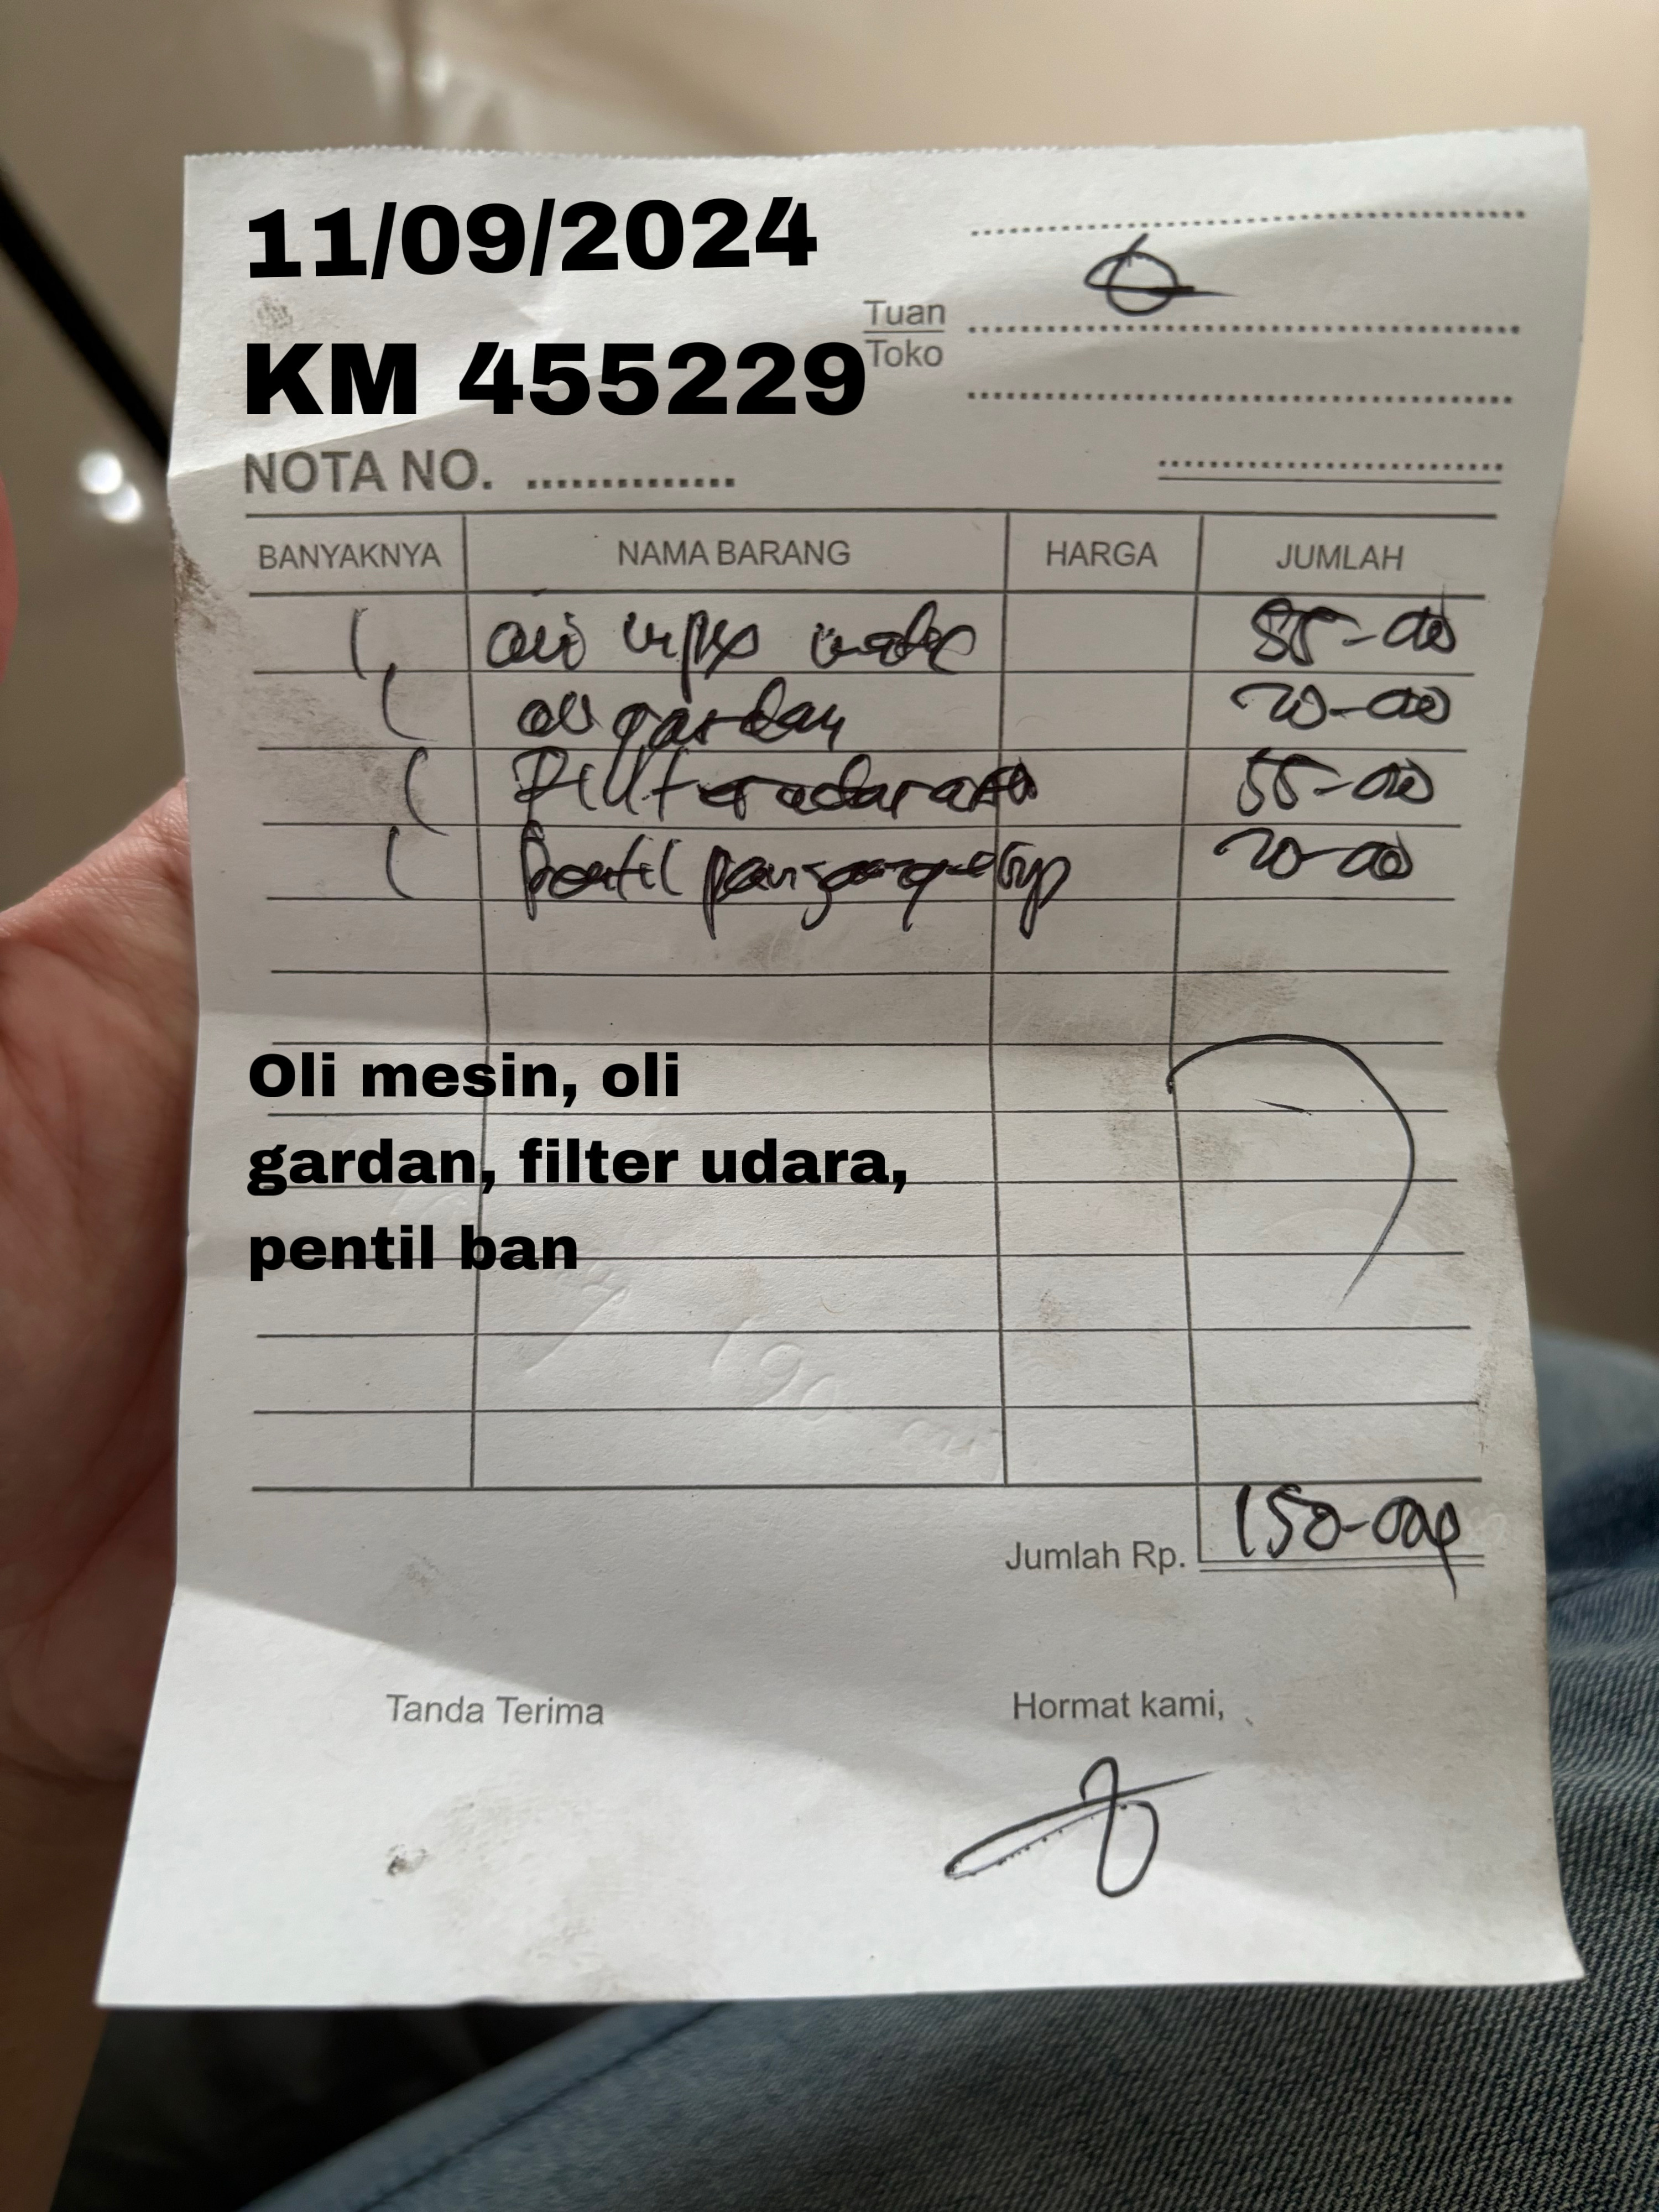 11/09/2024
KM 455229
Tuan
Toko
NOTA NO.
BANYAKNYA NAMA BARANG HARGA JUMLAH
1 oli 55-000
1 oli gardan 20-000
1 55-000
1 pentil 20-000
Oli mesin, oli
gardan, filter udara,
pentil ban
Jumlah Rp. 150-000
Tanda Terima Hormat kami,